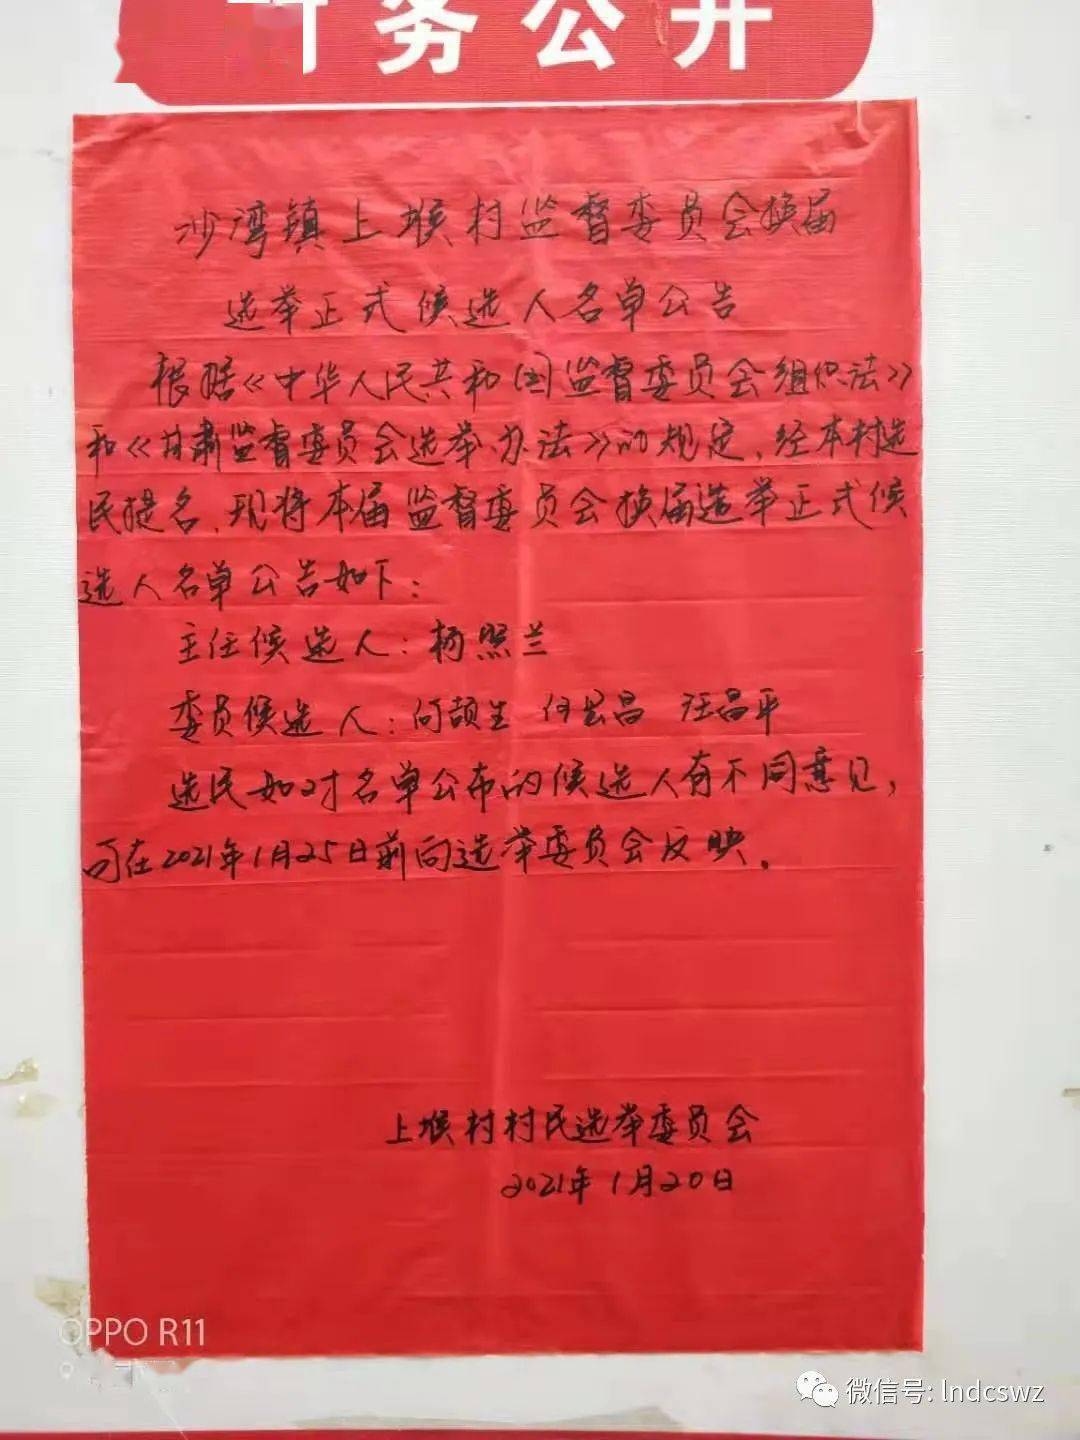 务公开
沙湾镇上堠村监督委员会换届
选举正式候选人名单公告
根据《中华人民共和国监督委员会组织法》
和《甘肃监督委员会选举办法》的规定,经本村选
民提名,现将本届监督委员会换届选举正式候
选人名单公告如下:
主任候选人:杨照兰
委员候选人:何颉生 何 昌 汪昌平
选民如对名单公布的候选人有不同意见,
可在2021年1月25日前向选举委员会反映。
上堠村村民选举委员会
2021年1月20日
OPPO R11
微信号: lndcswz